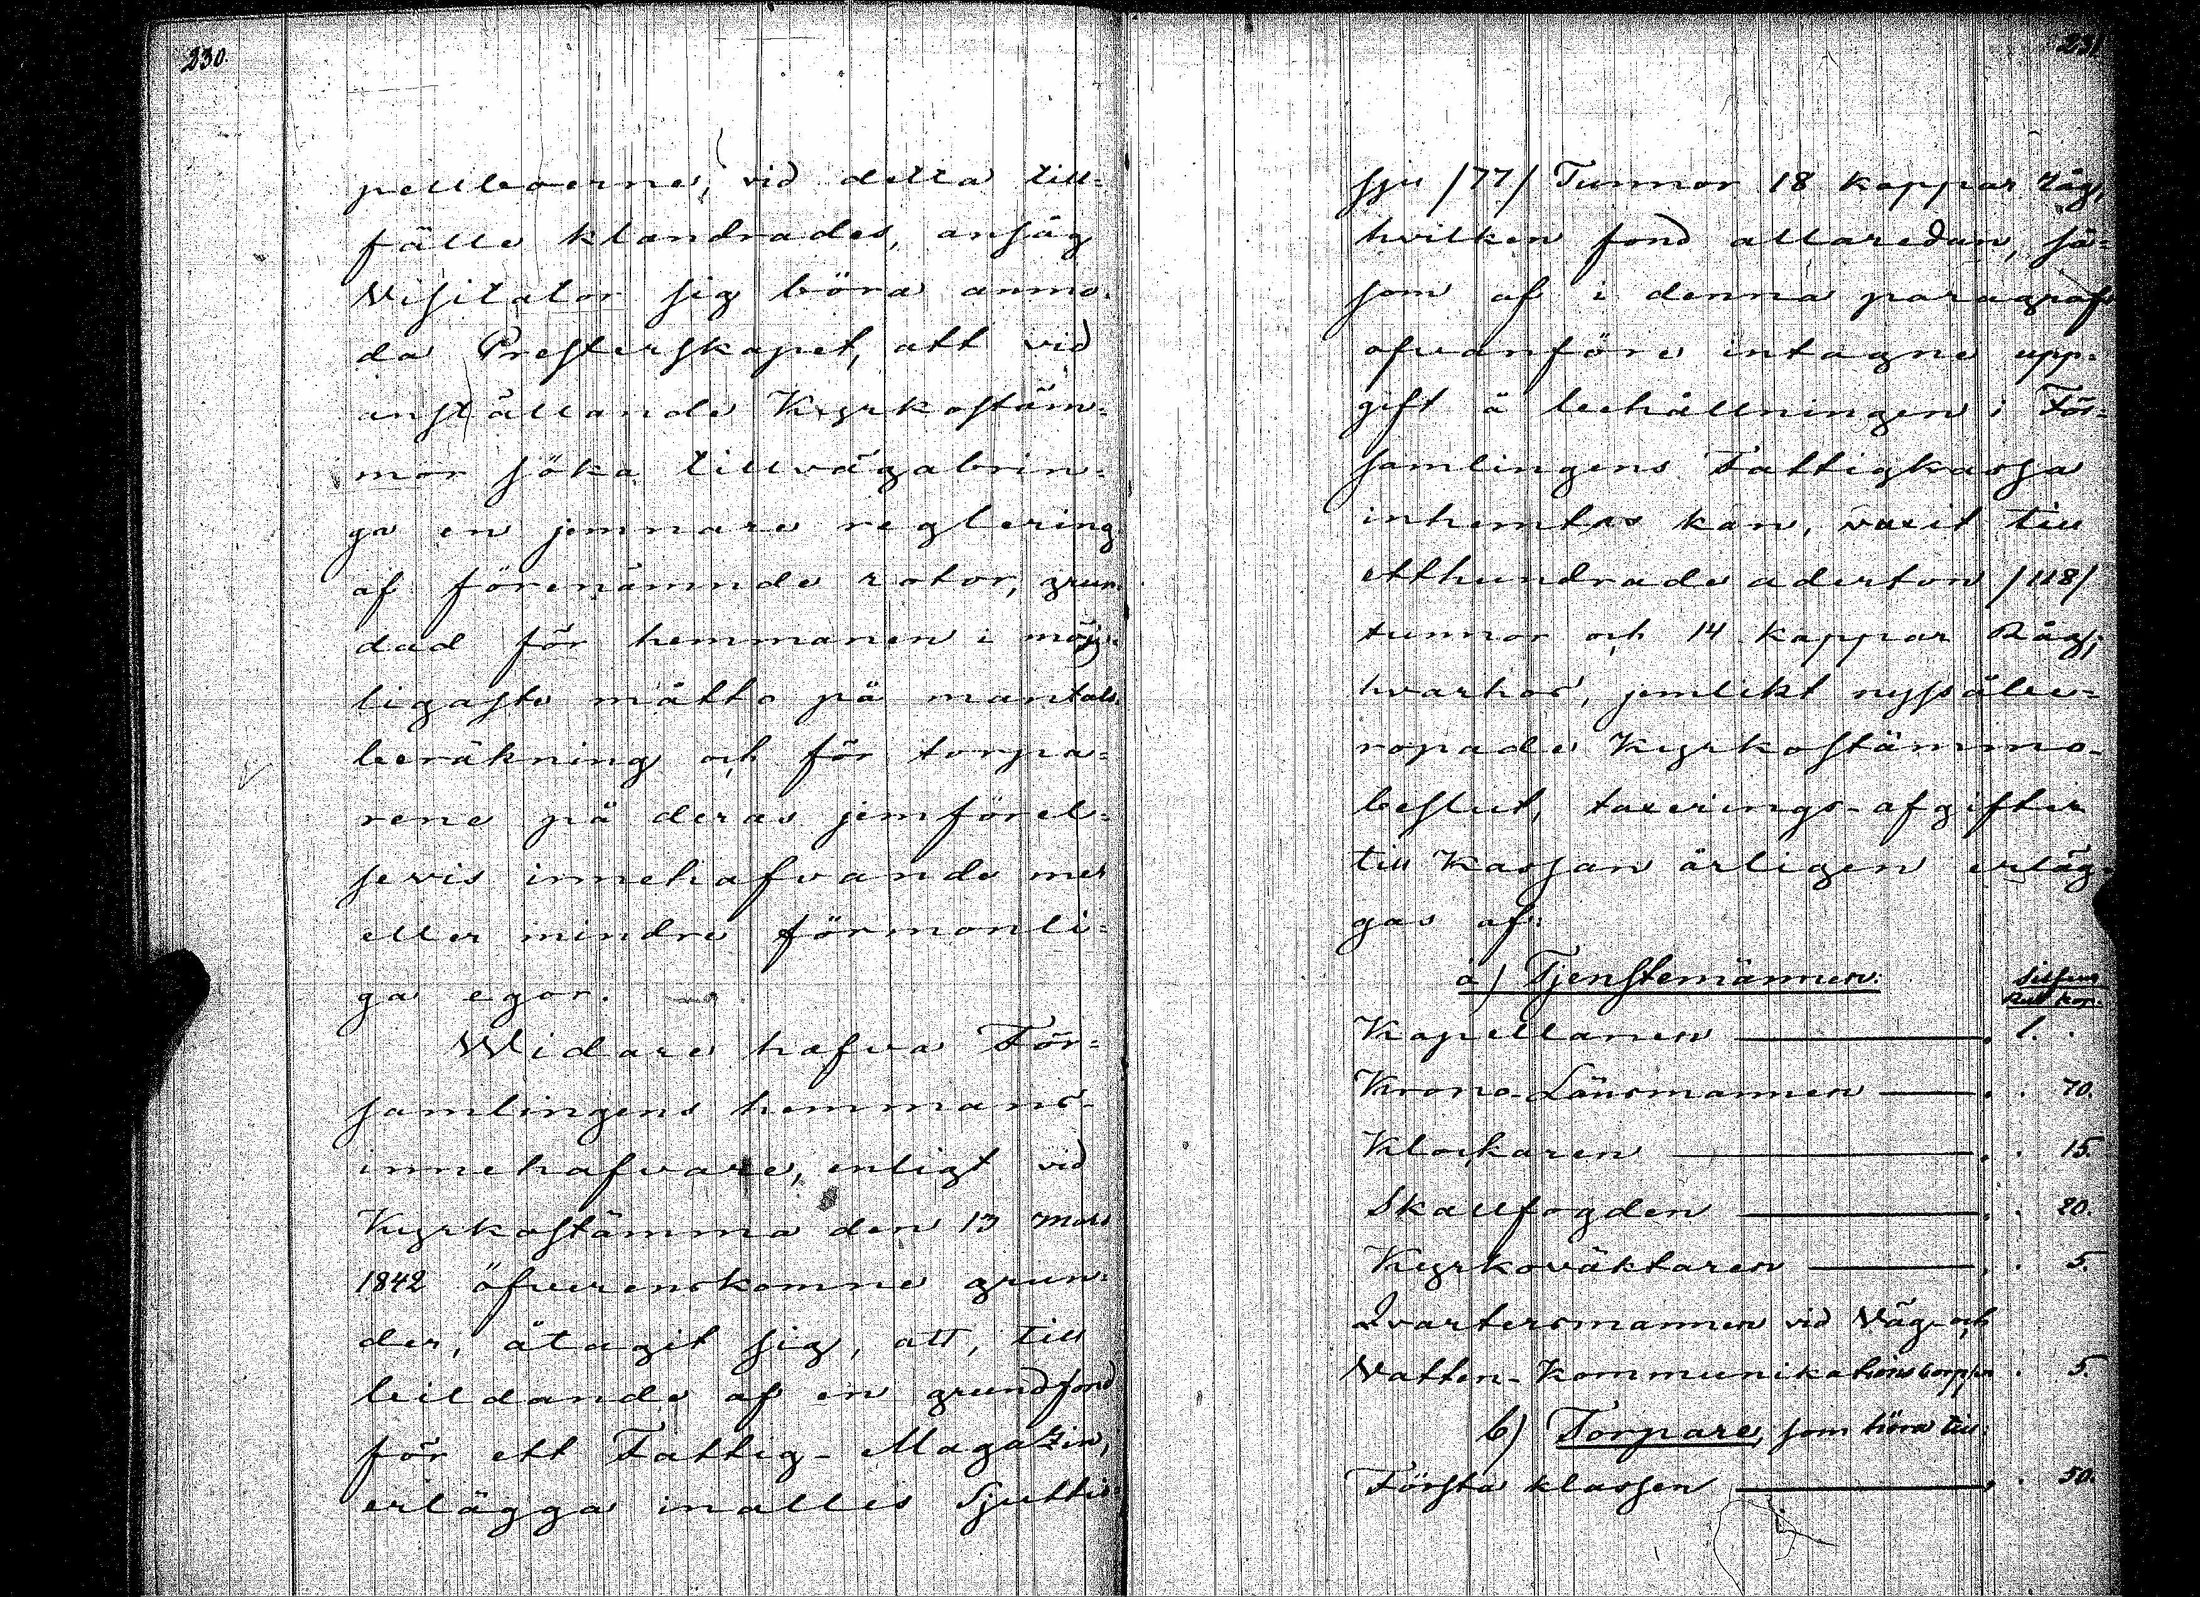 230.
pellboerne, vid detta till=
fälle klandrades, ansåg
Visitator sig böra anmo-
da Presterskapet, att vid
anställande Kyrkostäm=
mor söka tillvägabrin=
ga en jemnare reglering
af förenämnde rotor, grun-
dad för hemmanen i möj-
ligaste måtto på mantals-
beräkning och för torpa=
rene på deras jemförel=
sevis innehafvande mer
eller mindre förmonli=
ga egor.
Widare hafva För=
samlingens hemmans-
innehafvare, enligt vid
Kyrkostämma den 13 Mars
1842 öfverenskomne grun=
der, åtagit sig, att, till
bildande af en grundfond
för ett Fattig-Magazin,
erlägga inalles Sjutti=
231
sju /77/ Tunnor 18 kappar Råg,
hvilken fond allaredan, så=
som af i denna paragraf
ofvanföre intagne upp=
gift å behållningen i För=
samlingens Fattigkassa
inhemtas kan, vuxit till
etthundrade aderton /118/
tunnor och 14 kappar Råg;
hvarhos, jemlikt nyssåbe=
ropade Kyrkostämmo-
beslut, taxerings-afgifter
till Kassan årligen erläg-
gas af:
a) Tjenstemännen:
Silfver
Rub. kop.
Kapellanen 1. .
Krono-Länsmannen . 70.
Klockaren . 15.
Skallfogden . 20.
Kyrkoväktaren . 5.
Qvartersmannen vid Väg- och
Vatten-Kommunikationscorpsen . 5.
b) Torpare, som höra till:
Första klassen . 50.